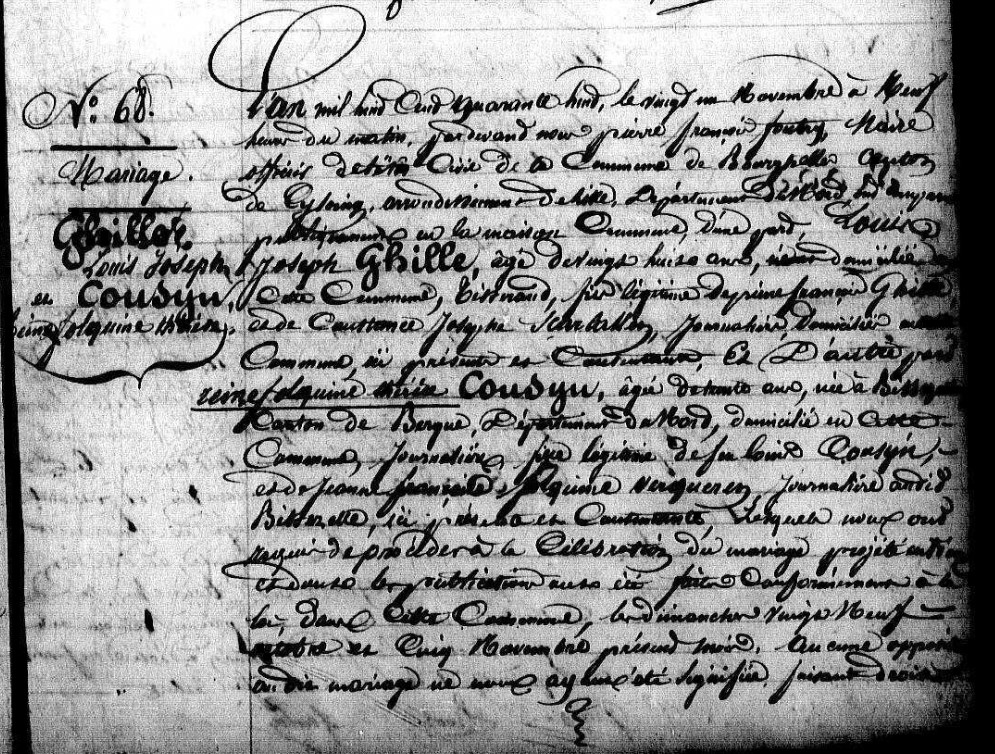 N.º 68.
Mariage.
Ghille,
Louis Joseph
et Cousyn,
reine folquine thérèse.
L'an mil huit Cent quarante huit, le vingt un Novembre à Neuf
heures du matin, pardevant nous pierre françois, Maire
officier de l'état Civil de la Commune de Bourghelles Canton
de Cysoing, arrondissement de lille, Département du Nord,
publiquement en la maison Commune, d'une part, Louis
Joseph Ghille, agé de vingt huit ans, domicilié
Cette Commune, Tisserand, fils légitime de pierre françois Ghille,
et de Constance Josephe, Journalière, domiciliée
Commune, ici présents et Consentants, Et D'autre part
reine folquine thérèse Cousyn, âgée de trente ans, née à
Canton de Bergue, Département du Nord, domiciliée en Cette
Commune, Journalière, fille légitime de feu louis Cousyn,
et de Jeanne françoise folquine, Journalière audit
Bissezeele, ici présente et Consentante, Lesquels nous ont
requis de procéder à la Célébration du mariage projeté entr'eux
et dont les publications ont été faites Conformément à la
loi, dans Cette Commune, les dimanches vingt Neuf
octobre et Cinq Novembre présent mois. Aucune opposition
au dit mariage ne nous ayant été signifiée, faisant droit